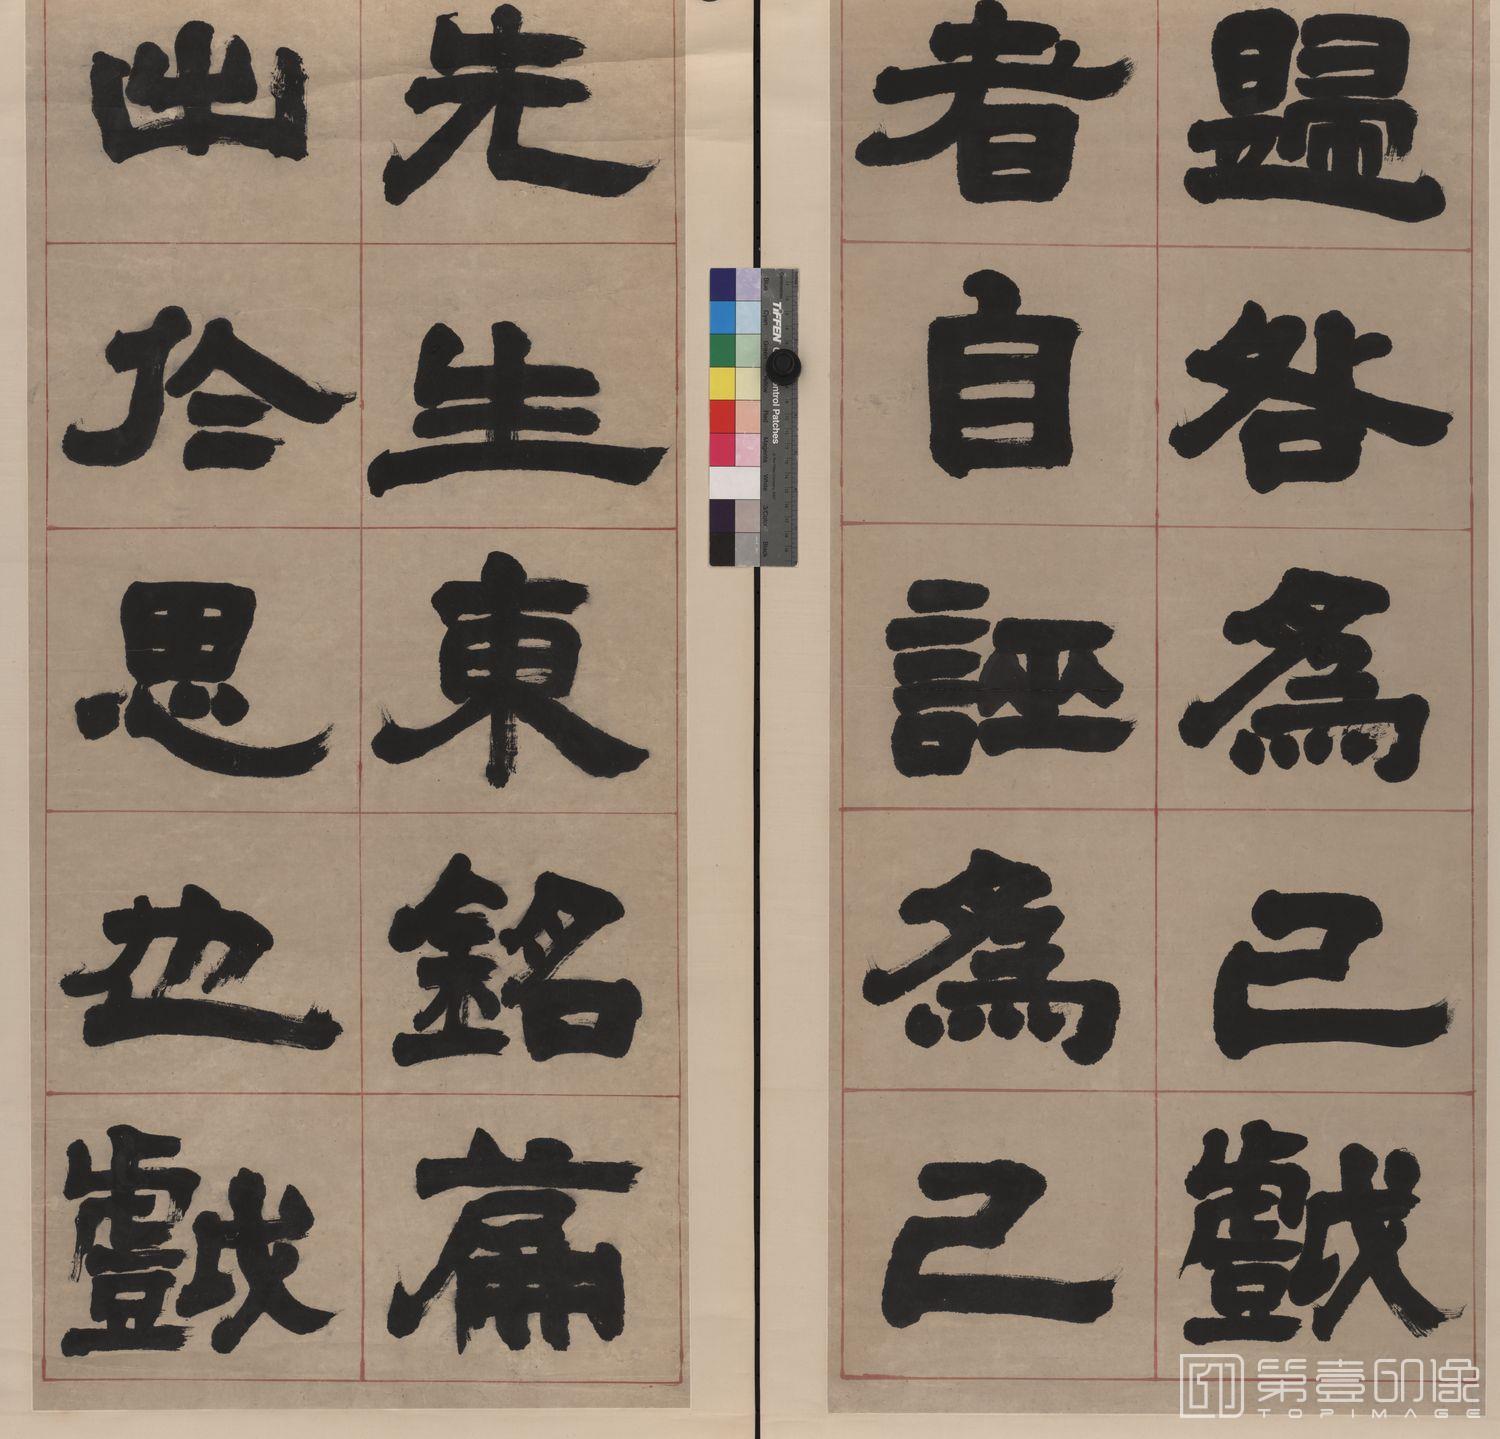 歸咎爲己戲
者自誣爲己
先生東銘篇
出於思也戲
TIFFEN
Control Patches
Blue
Cyan
Green
Yellow
Red
Magenta
White
3/Color
Black
第壹印像
TOPIMAGE